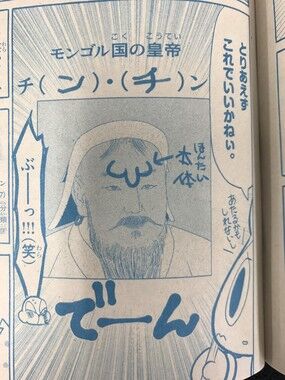 とりあえず
これでいいかねぃ。
モンゴル国の皇帝
こく こうてい
チ(ン)・(チ)ン
ほんたい
本体
ぶーっ!!!(笑)
わら
あたるかも
しれないし
でーん